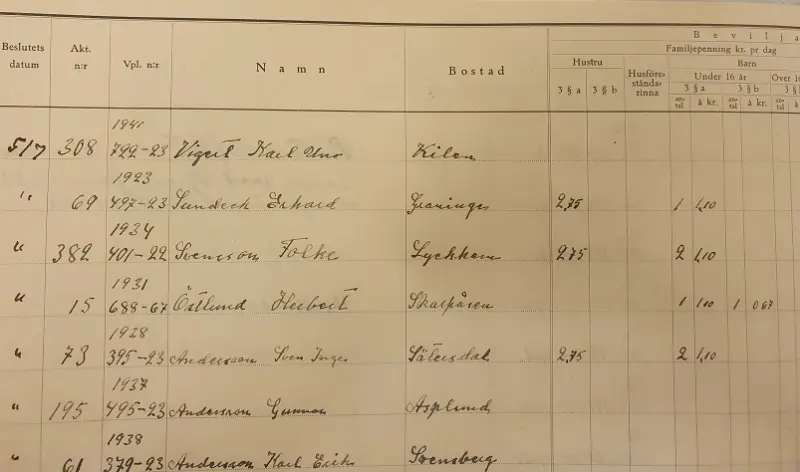 Bevilja
Familjepenning kr. pr dag
Beslutets datum Akt. n:r Vpl. n:r Namn Bostad Hustru Husföre- stånda- rinna Barn
Under 16 år Over 16
3 § a 3 § b 3 § a 3 § b 3 §
an- tal à kr. an- tal à kr. an- tal
1941
5/7 308 722-23 Vigert Karl Uno Kilen
1923
" 69 497-23 Sundeck Erhard Graninge 2,75 1 1,10
1934
" 382 401-22 Svensson Folke Lyckhem 2,75 2 1,10
1931
" 15 688-67 Östlund Herbert Skarpåsen 1 1,10 1 0,67
1928
" 73 395-23 Andersson Sven Inge Sätersdal 2,75 2 1,10
1937
" 195 495-23 Andersson Gunnar Asplund
1938
" 61 379-23 Andersson Karl Erik Svensberg